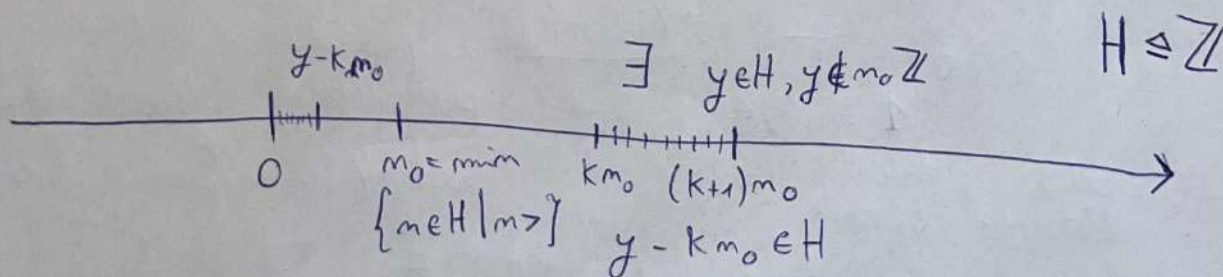 y-km₀ ∃ y∈H, y∉m₀ℤ H ≤ ℤ
0 m₀ = min km₀ (k+1)m₀
{m∈H | m>} y - km₀ ∈ H